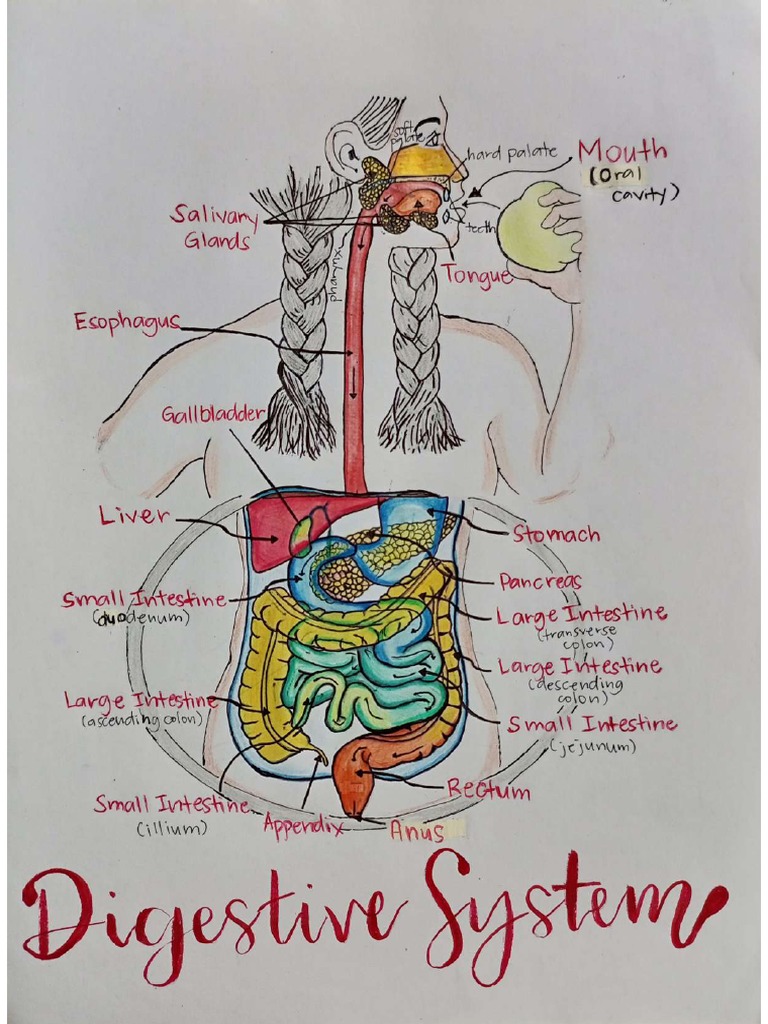 soft
palate
hard palate
Mouth
(Oral
cavity)
Salivary
Glands
teeth
Tongue
pharynx
Esophagus
Gallbladder
Liver
Stomach
Pancreas
Small Intestine
(duodenum)
Large Intestine
(transverse
colon)
Large Intestine
(descending
colon)
Large Intestine
(ascending colon)
Small Intestine
(jejunum)
Rectum
Small Intestine
(illium)
Appendix
Anus
Digestive System